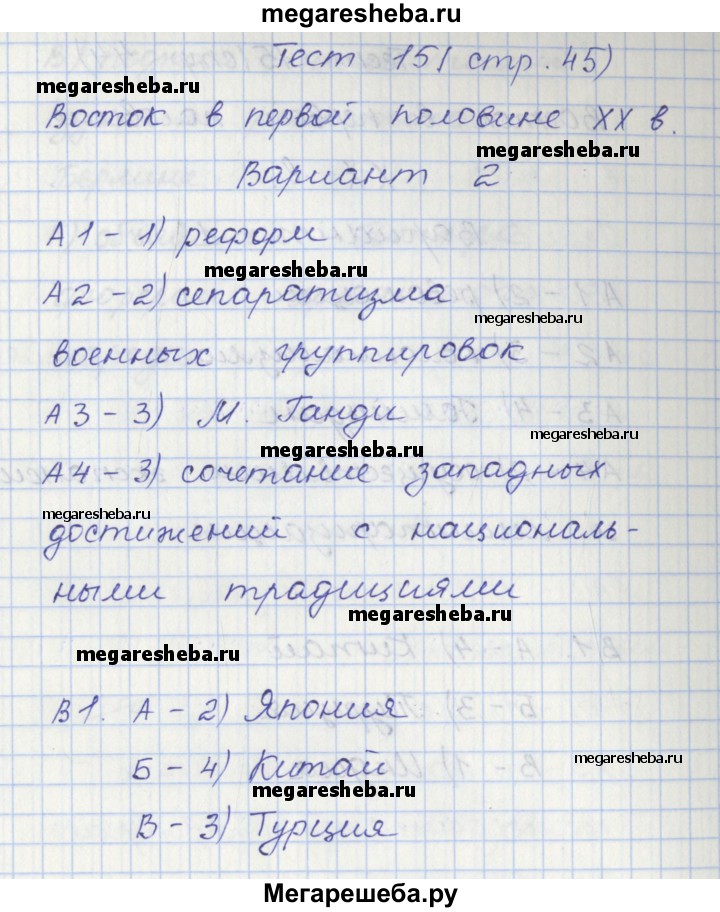 megaresheba.ru
Тест 15( стр. 45)
megaresheba.ru
Восток в первой половине XX в.
megaresheba.ru
Вариант 2
А1 - 1) реформ
megaresheba.ru
А2 - 2) сепаратизма
megaresheba.ru
военных группировок
А3 - 3) М. Ганди
megaresheba.ru
megaresheba.ru
А4 - 3) сочетание западных
megaresheba.ru
достижений с националь-
ными традициями
megaresheba.ru
megaresheba.ru
В1. А - 2) Япония
Б - 4) Китай
megaresheba.ru
megaresheba.ru
В - 3) Турция
Мегарешеба.ру